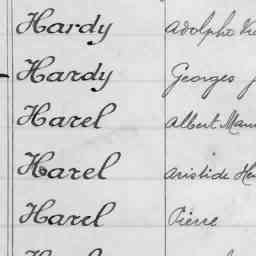 Hardy Adolphe
Hardy Georges
Harel Albert
Harel Aristide
Harel Pierre